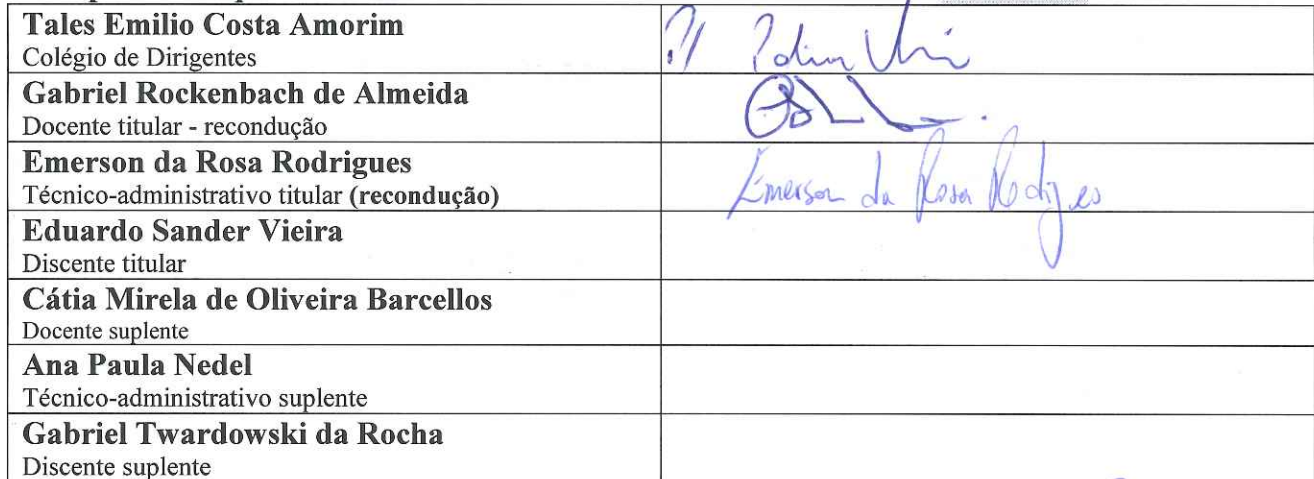 Tales Emilio Costa Amorim
Colégio de Dirigentes
Gabriel Rockenbach de Almeida
Docente titular - recondução
Emerson da Rosa Rodrigues
Técnico-administrativo titular (recondução)
Emerson da Rosa Rodrigues
Eduardo Sander Vieira
Discente titular
Cátia Mirela de Oliveira Barcellos
Docente suplente
Ana Paula Nedel
Técnico-administrativo suplente
Gabriel Twardowski da Rocha
Discente suplente